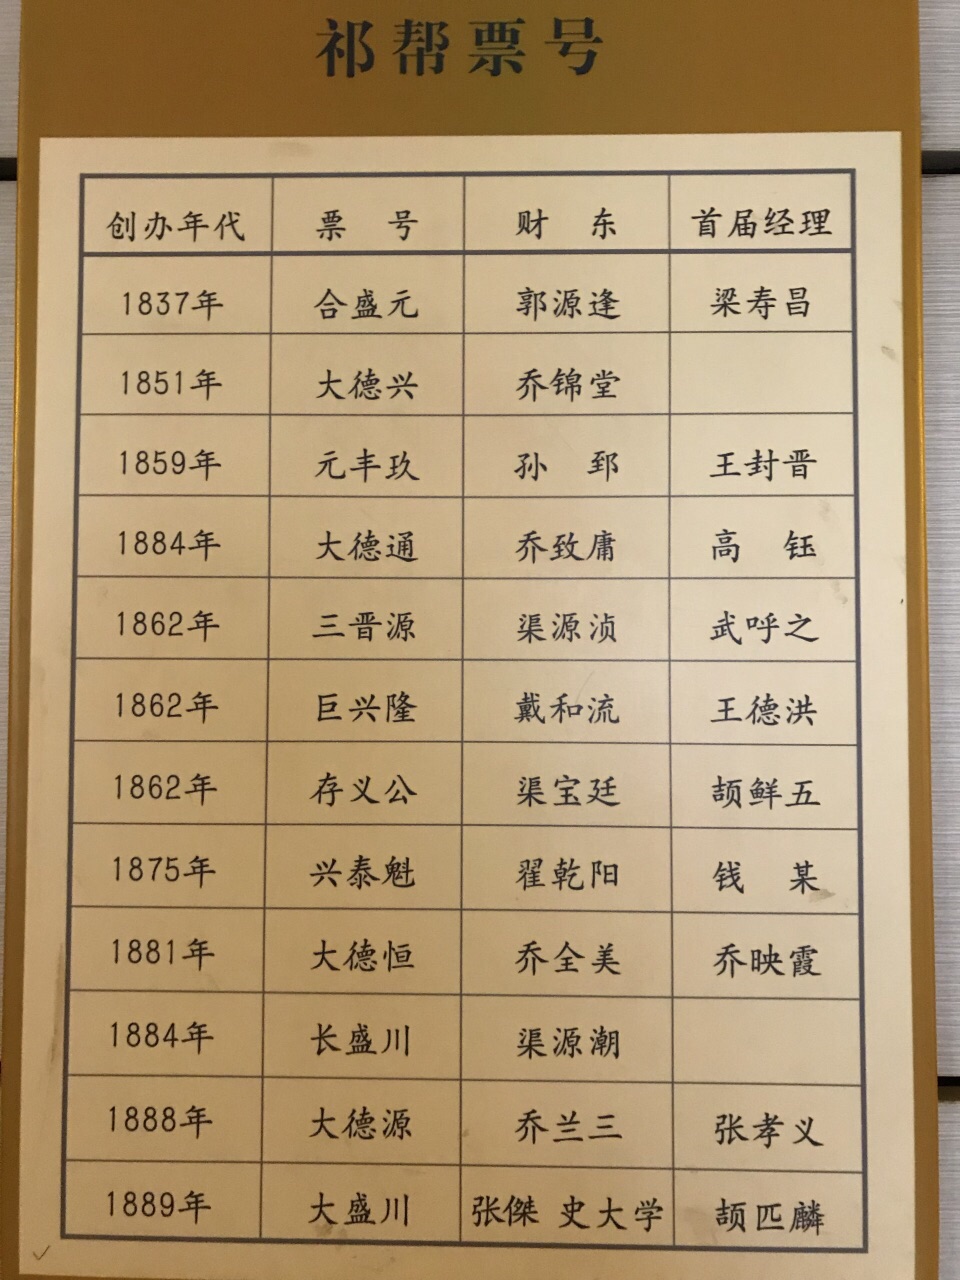 祁帮票号
创办年代 票 号 财 东 首届经理
1837年 合盛元 郭源逢 梁寿昌
1851年 大德兴 乔锦堂
1859年 元丰玖 孙 郅 王封晋
1884年 大德通 乔致庸 高 钰
1862年 三晋源 渠源浈 武呼之
1862年 巨兴隆 戴和流 王德洪
1862年 存义公 渠宝廷 颉鲜五
1875年 兴泰魁 翟乾阳 钱 某
1881年 大德恒 乔全美 乔映霞
1884年 长盛川 渠源潮
1888年 大德源 乔兰三 张孝义
1889年 大盛川 张傑 史大学 颉匹麟